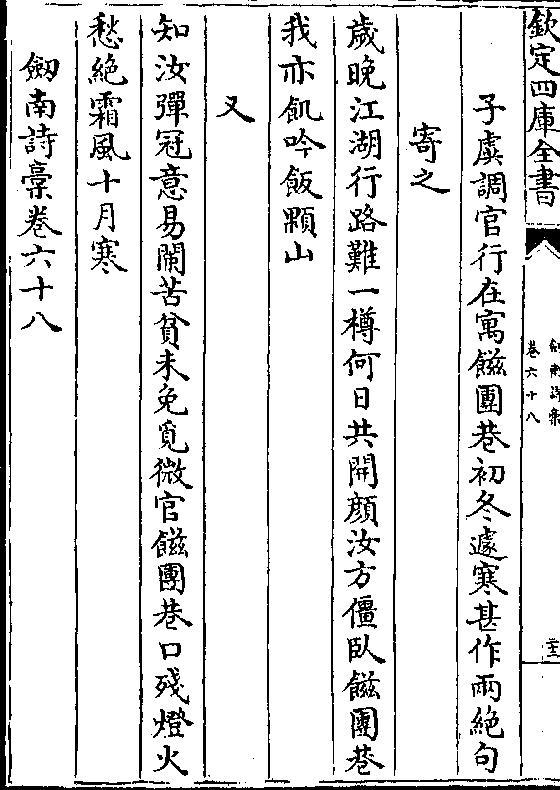 欽定四庫全書
劍南詩稾
卷六十八
子虡調官行在寓餹團巷初冬遽寒甚作兩絶句
寄之
歲晚江湖行路難一樽何日共開顔汝方僵臥餹團巷
我亦飢吟飯顆山
又
知汝彈冠意易闌苦貧未免覓微官餹團巷口殘燈火
愁絶霜風十月寒
劔南詩稾卷六十八